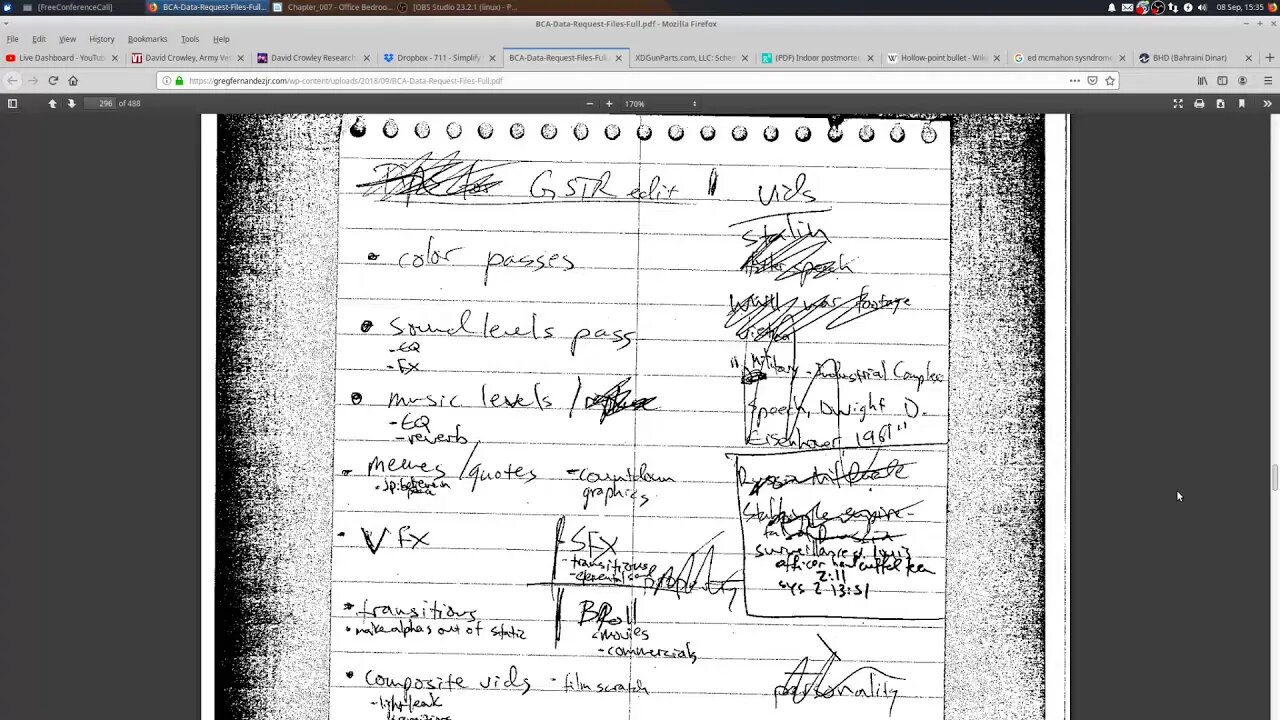 [FreeConferenceCall]
BCA-Data-Request-Files-Full...
Chapter_007 - Office Bedroo...
[OBS Studio 23.2.1 (linux) - P...
08 Sep, 15:35
BCA-Data-Request-Files-Full.pdf - Mozilla Firefox
File Edit View History Bookmarks Tools Help
Live Dashboard - YouTube
David Crowley, Army Ve
David Crowley Research
Dropbox - 711 - Simplify
BCA-Data-Request-Files-Full.
XDGunParts.com, LLC: Schem
(PDF) Indoor postmortem
Hollow-point bullet - Wiki
ed mcmahon sysndrome
BHD (Bahraini Dinar)
https://gregfernandezjr.com/wp-content/uploads/2018/09/BCA-Data-Request-Files-Full.pdf
296 of 488
170%
GSTR edit
vids
Stalin
• color passes
WWII war footage
• sound levels pass
- EQ
- FX
"Military - Industrial Complex
Speech, Dwight D.
Eisenhower 1961"
• music levels /
- EQ
- reverb
• memes/quotes
- countdown graphics
• VFX
SFX
- transitions
property
surveillance
officer handcuffed teen
2:11
sys 2 13:51
• transitions
• make alphas out of static
BRoll
- movies
- commercials
• composite vids - film scratch
- light leak
personality